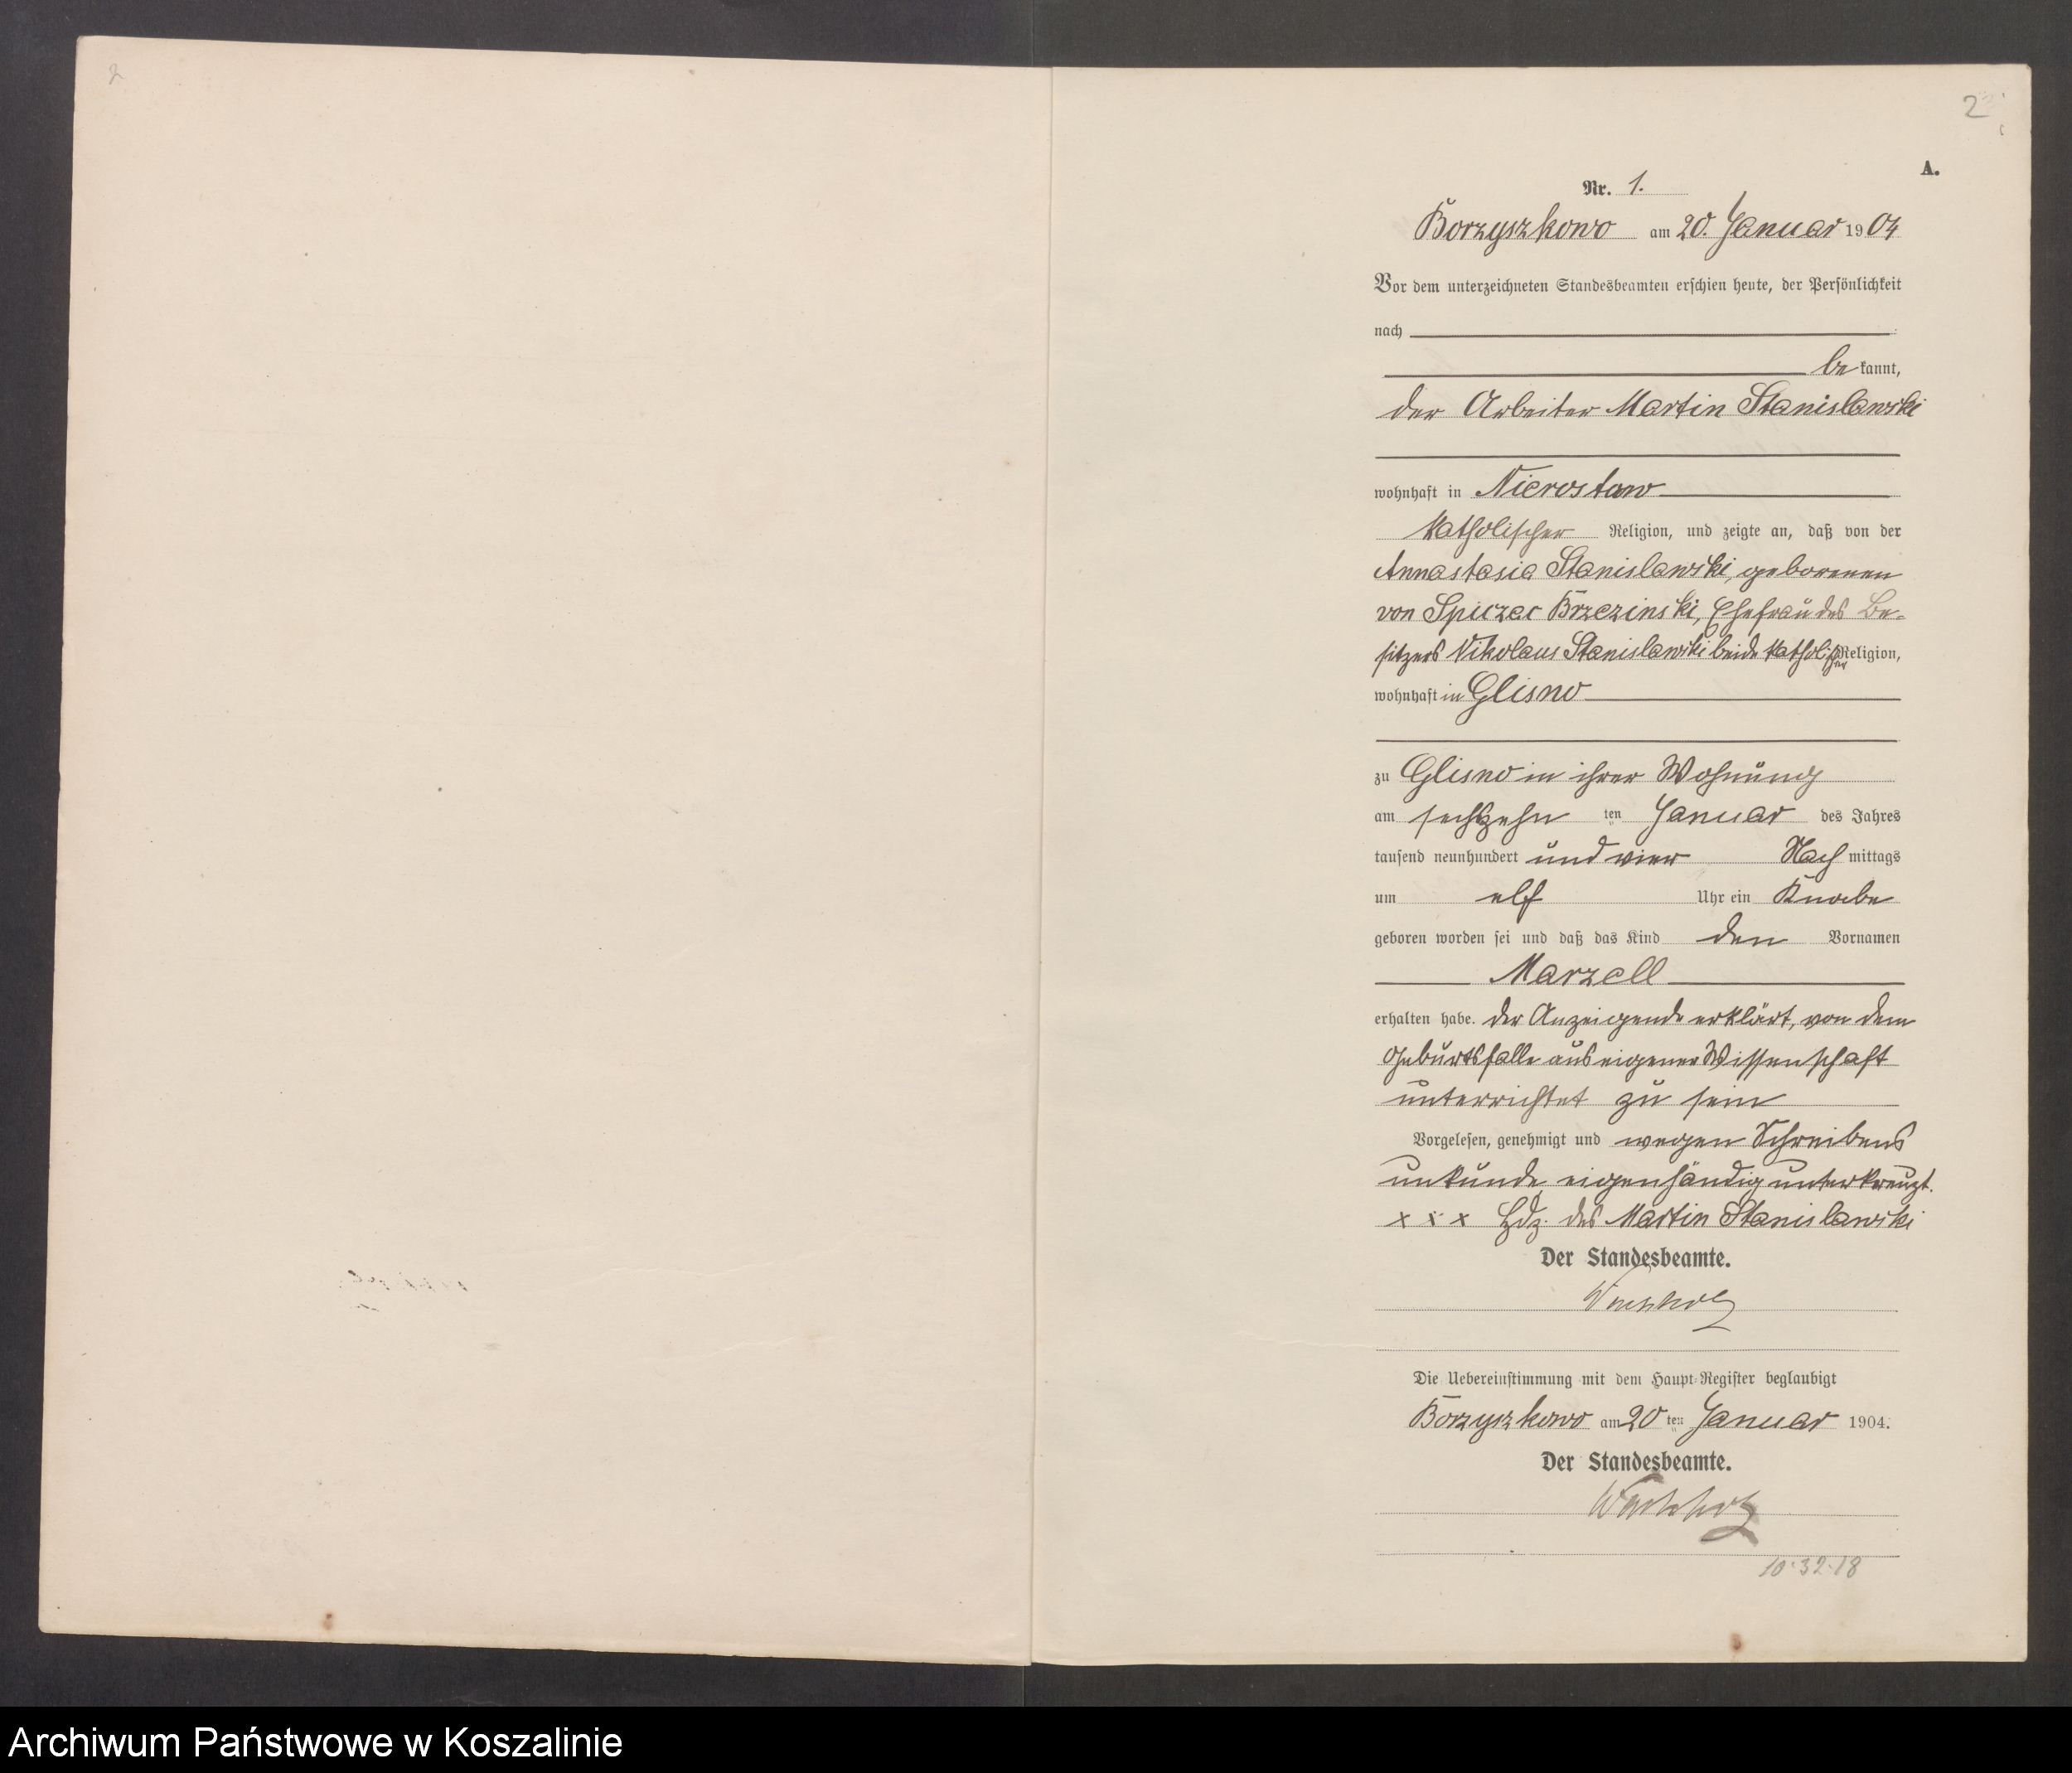 2
A.
Nr. 1.
Borzyszkowo am 20. Januar 1904
Vor dem unterzeichneten Standesbeamten erschien heute, der Persönlichkeit
nach
be kannt,
der Arbeiter Martin Stanislawski
wohnhaft in Nierostaw
katholischer Religion, und zeigte an, daß von der
Annastasia Stanislawski, geborenen
von Spiczac Brzezinski, Ehefrau des Be-
sitzers Nikolaus Stanislawski beide katholischer Religion,
wohnhaft in Glisno
zu Glisno in ihrer Wohnung
am sechszehn ten Januar des Jahres
tausend neunhundert und vier Nach mittags
um elf Uhr ein Knabe
geboren worden sei und daß das Kind den Vornamen
Marzell
erhalten habe. Der Anzeigende erklärt, von dem
Geburtsfalle aus eigener Wissenschaft
unterrichtet zu sein
Vorgelesen, genehmigt und wegen Schreibens
unkunde eigenhändig unterkreuzt.
x x x Hdz. des Martin Stanislawski
Der Standesbeamte.
Die Uebereinstimmung mit dem Haupt-Register beglaubigt
Borzyszkowo am 20 ten Januar 1904.
Der Standesbeamte.
10·32·18
Archiwum Państwowe w Koszalinie